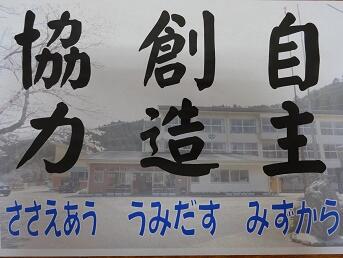 自主
創造
協力
みずから
うみだす
ささえあう